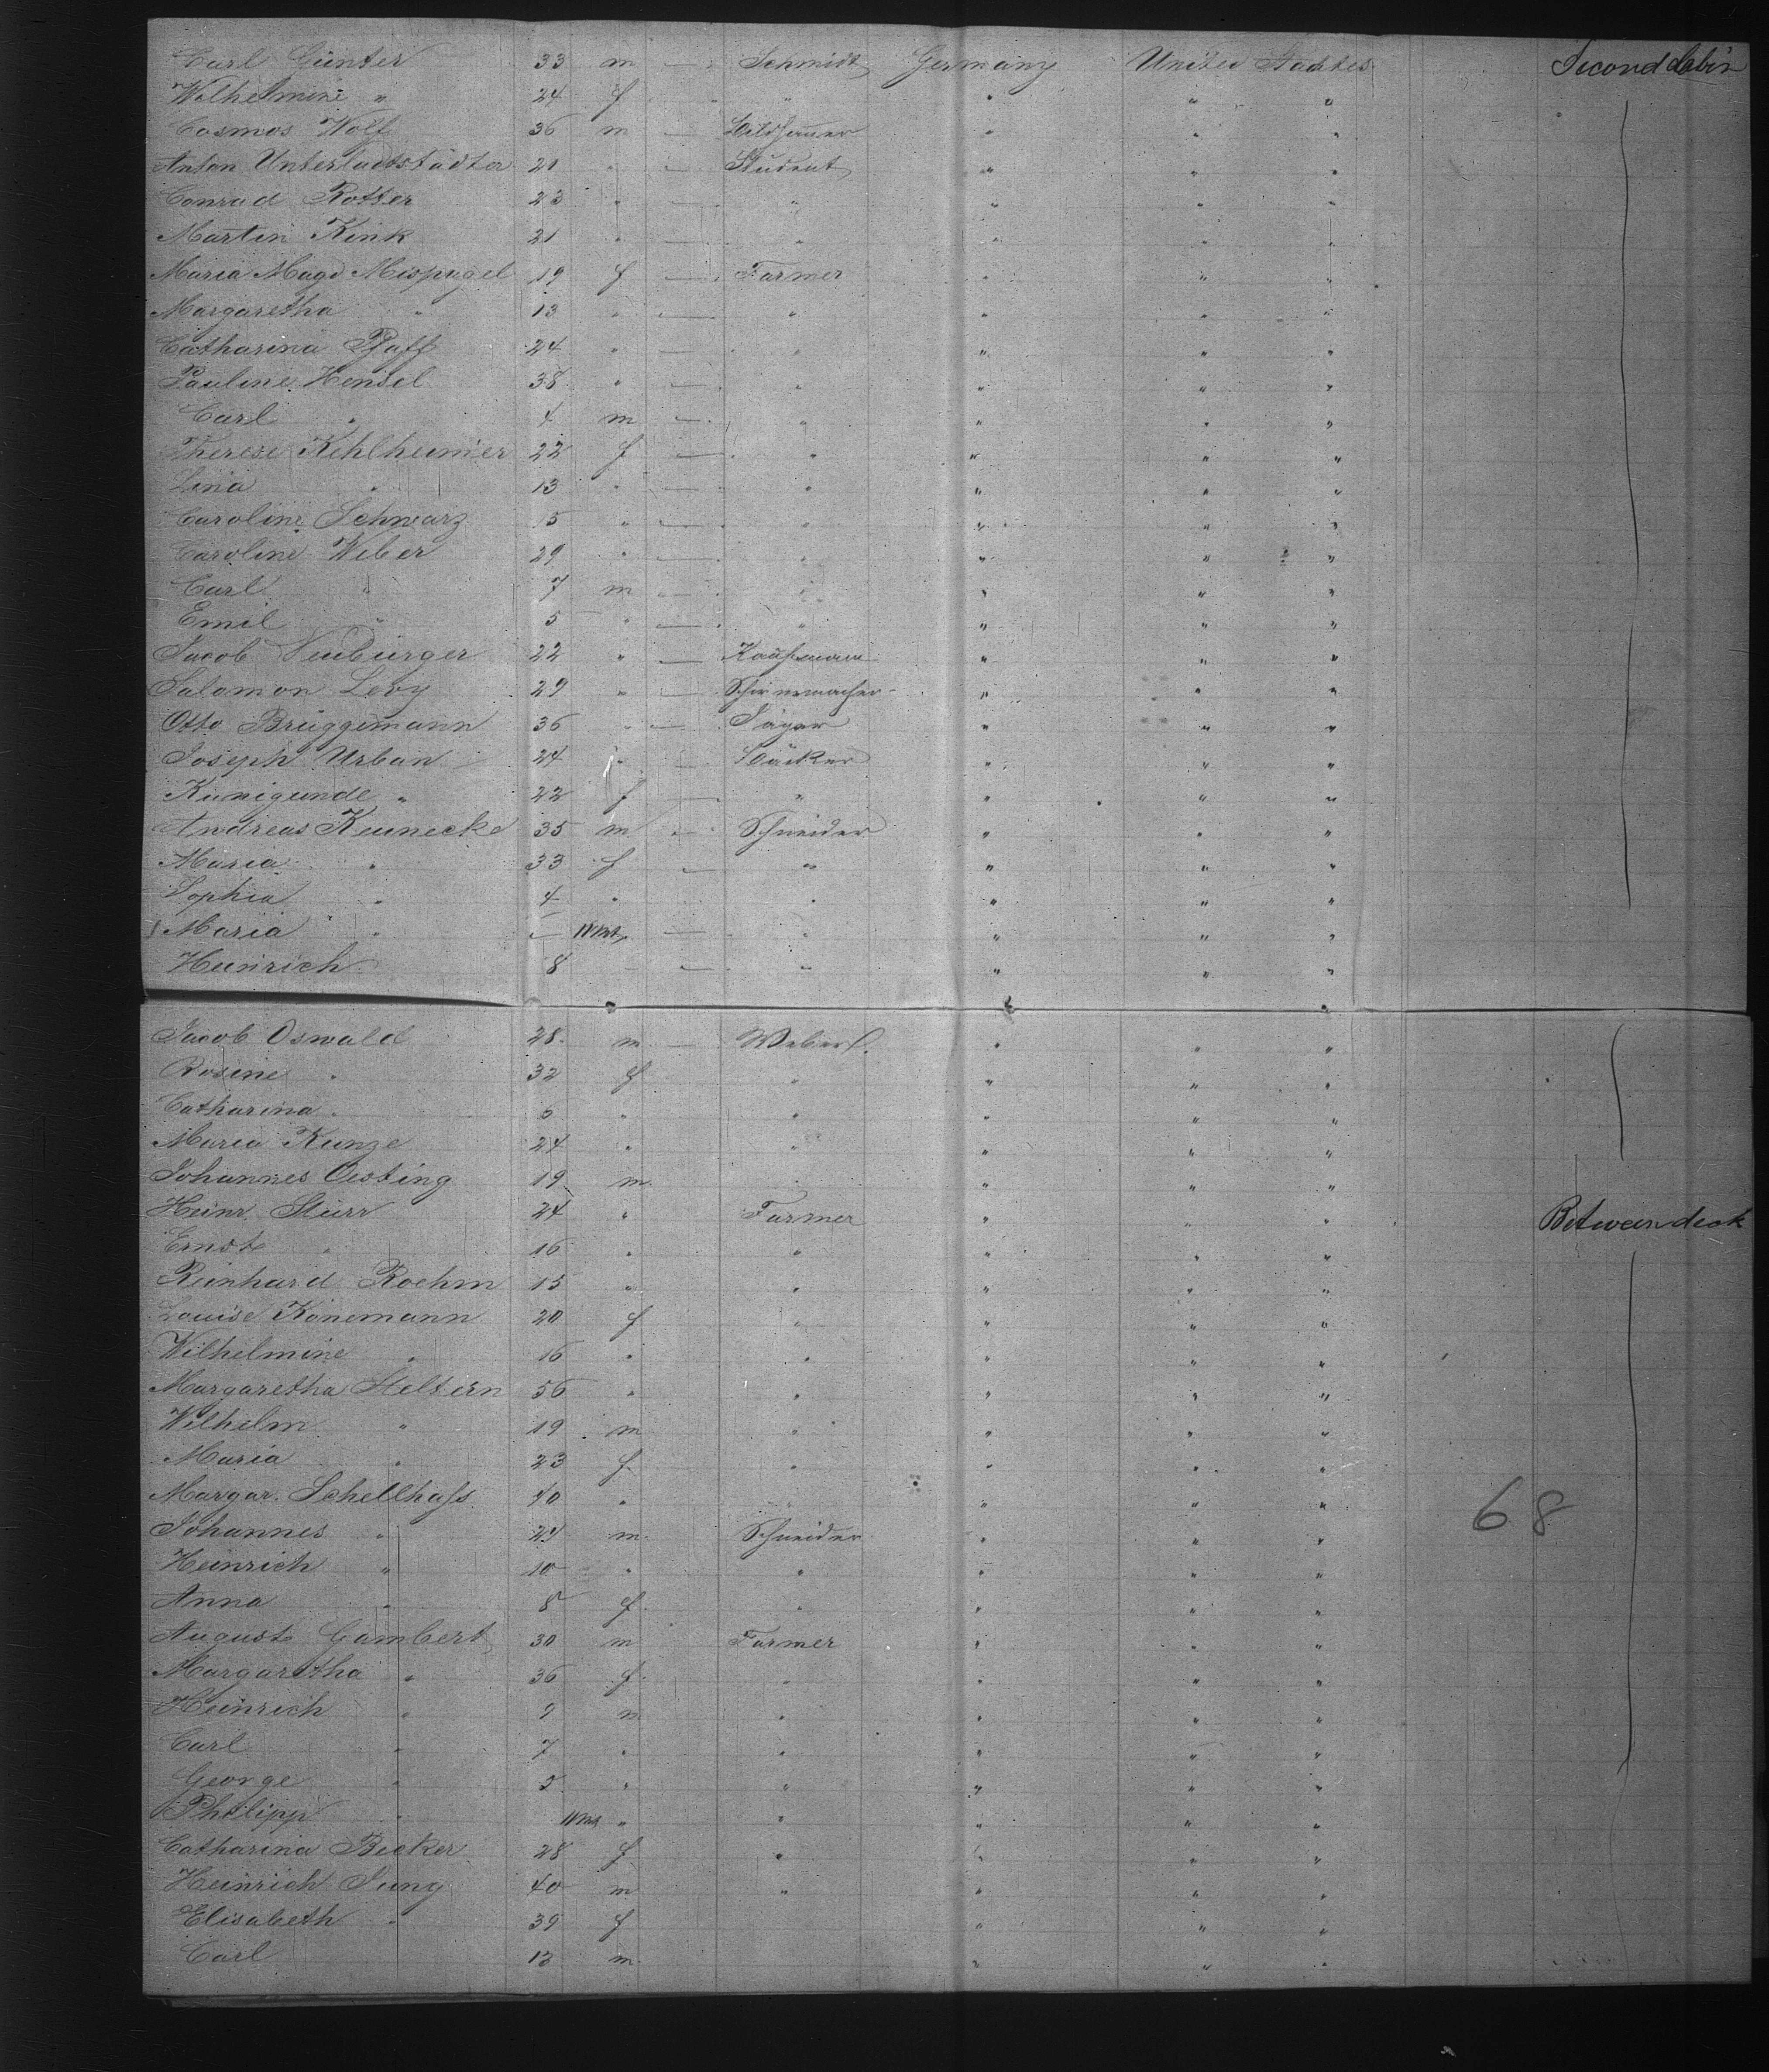 Carl Günter 33 m — Schmidt Germany United Staates Second Cabin
Wilhelmine " 24 f " " " "
Cosmos Wolf 36 m — Bildhauer " " "
Anton 21 " — Student " " "
Conrad Rotter 23 " — " " " "
Martin Kink 21 " — " " " "
Maria Magd Mispagel 19 f — Farmer " " "
Margaretha " 13 " — " " " "
Catharina Pfaff 24 " — " " " "
Pauline Hensel 38 " — " " " "
Carl " 4 m — " " " "
Therese Kehlheimer 22 f — " " " "
Lina " 13 " — " " " "
Caroline Schwarz 15 " — " " " "
Caroline Weber 29 " — " " " "
Carl " 7 m — " " " "
Emil " 5 " — " " " "
Jacob Neuburger 22 " — Kaufmann " " "
Salomon Levy 29 " — Schirmmacher " " "
Otto Brüggemann 36 " — Jäger " " "
Joseph Urban 24 " — Bäcker " " "
Kunigunde " 22 f — " " " "
Andreas Keunecke 35 m — Schneider " " "
Maria " 33 f — " " " "
Sophia " 4 " " " " "
Maria " — — " " " "
Heinrich 8 — " " " "
Jacob Oswald 28 m — Weber " " "
Rosine " 32 f " " " "
Catharina " 6 " " " " "
Maria Kunze 24 " " " " "
Johannes Oesting 19 m " " " "
Heinr. 24 " Farmer " " " Between deck
Ernst " 16 " " " " "
Reinhard Roehm 15 " " " " "
Louise Könemann 20 f " " " "
Wilhelmine " 16 " " " " "
Margaretha 56 " " " " "
Wilhelm " 19 m " " " "
Maria " 23 f " " " "
Margar. Schellhass 40 " " " " "
68
Johannes " m Schneider " " "
Heinrich " 10 " " " " "
Anna " 8 f " " " "
August Gambert 30 m Farmer " " "
Margaretha " 36 f " " " "
Heinrich " 9 m " " " "
Carl " 7 " " " " "
George " " " " " "
Philipp " " " " " "
Catharina Becker 28 f " " " "
Heinrich Jung 40 m " " " "
Elisabeth " 39 f " " "
Carl 13 m " " "